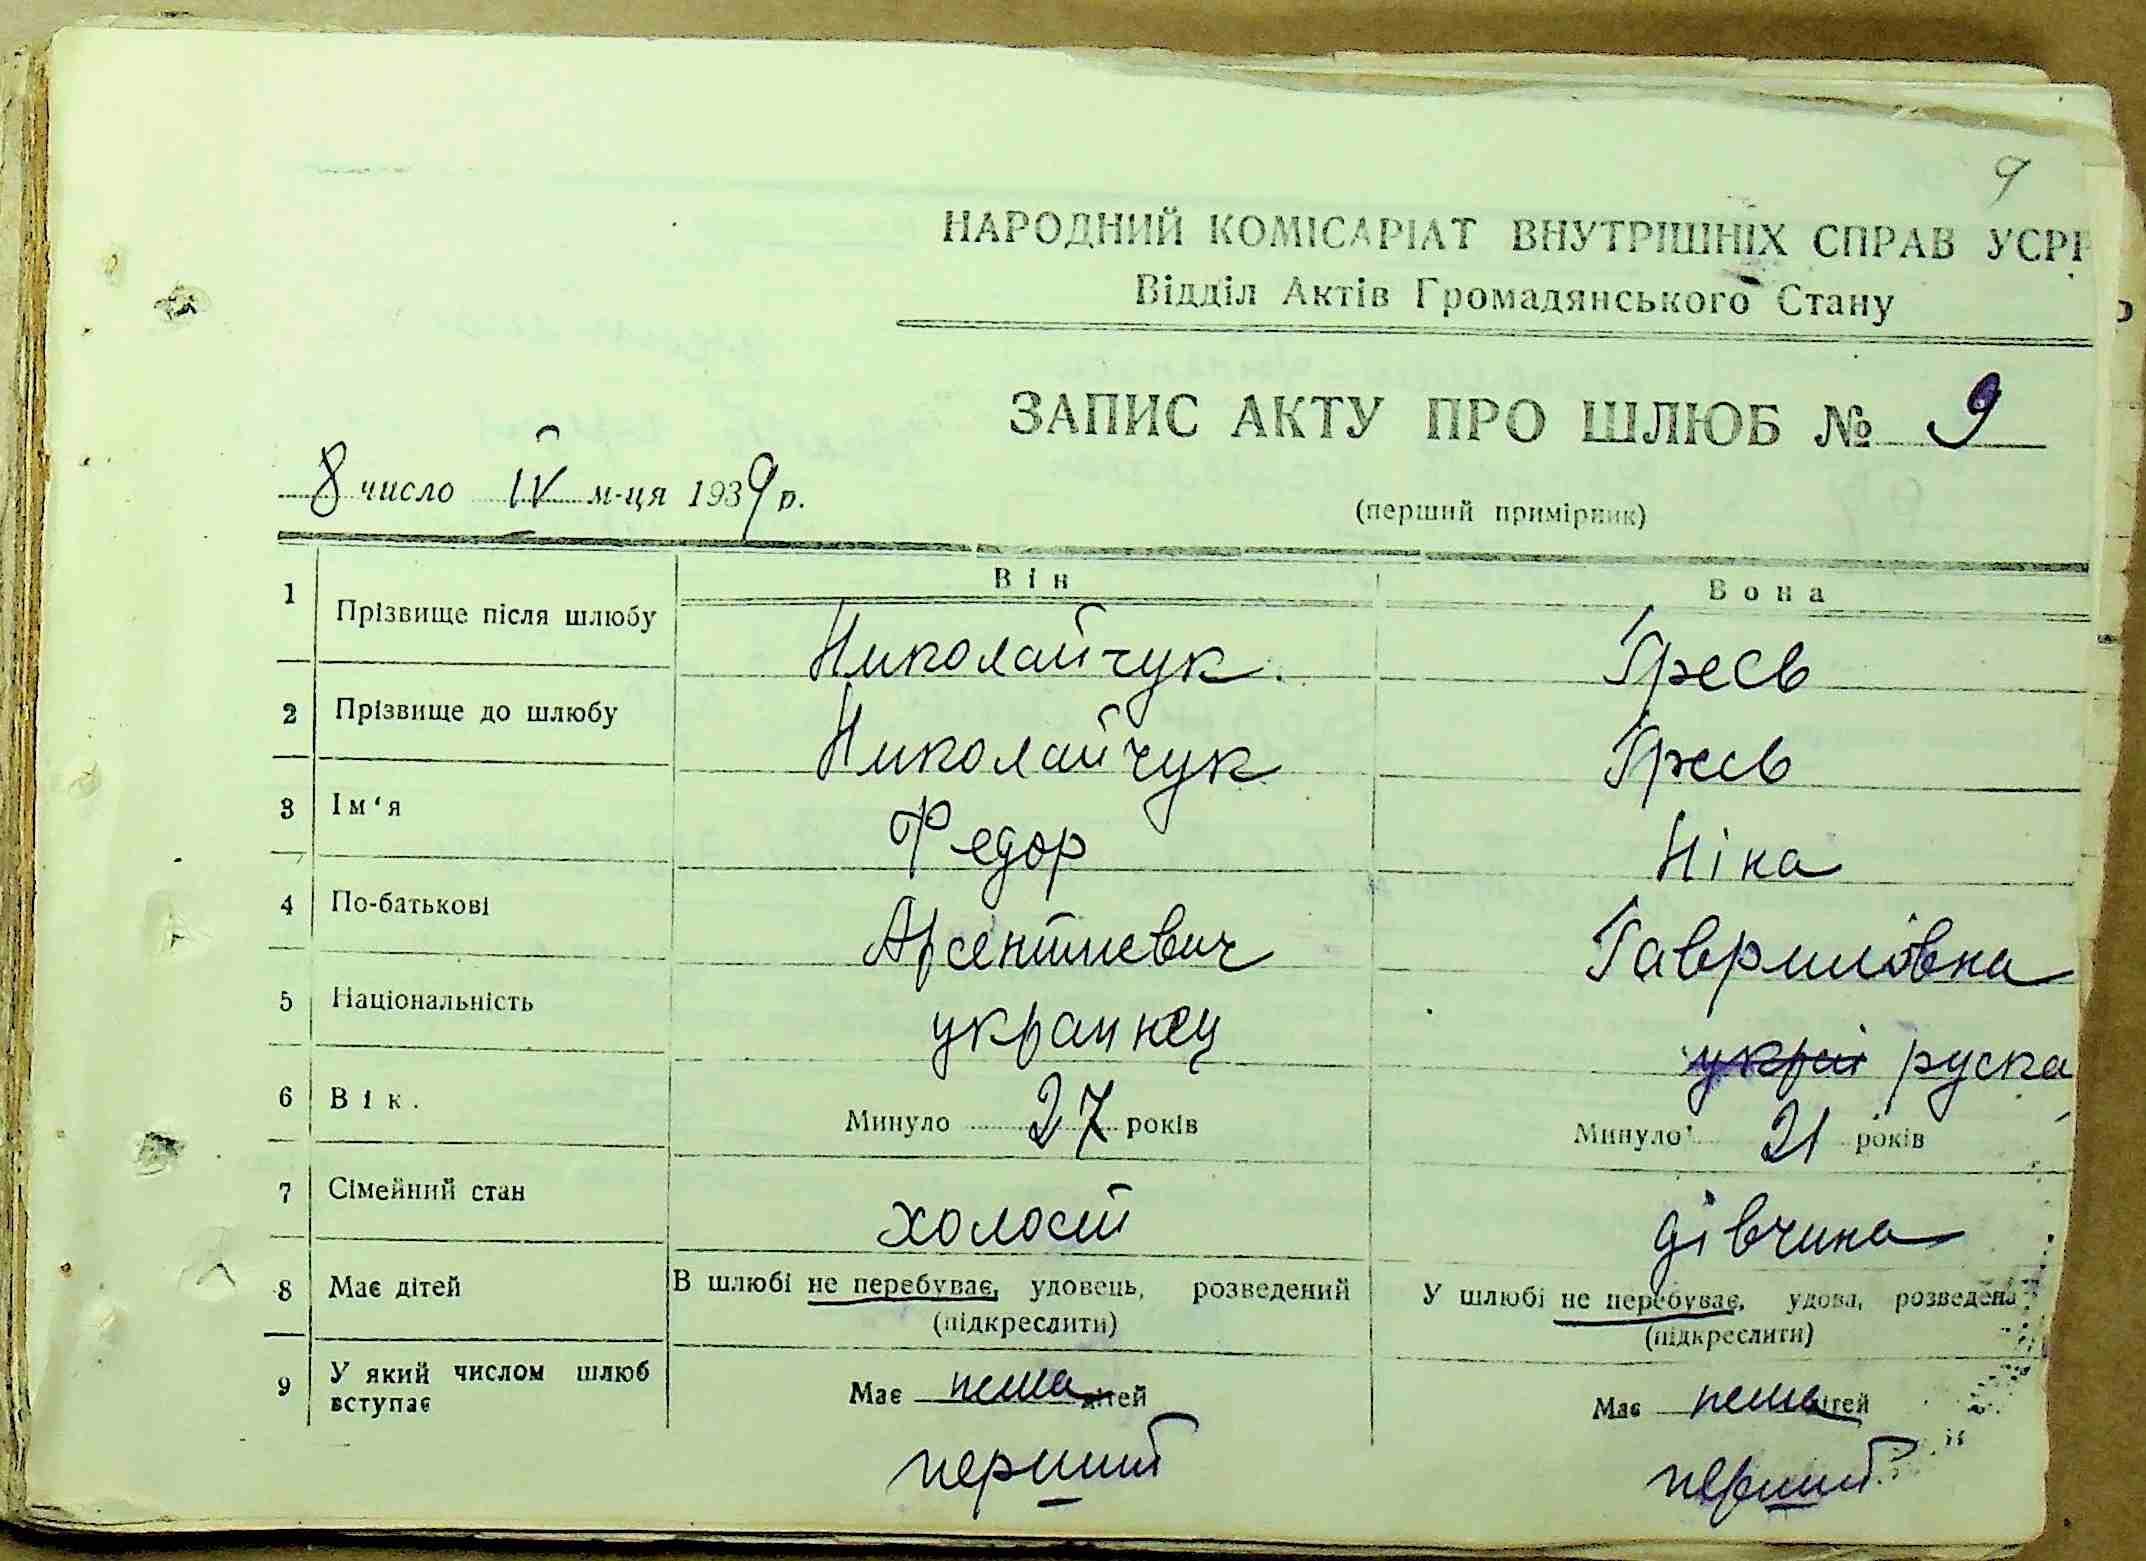 9
НАРОДНИЙ КОМІСАРІАТ ВНУТРІШНІХ СПРАВ УСРР
Відділ Актів Громадянського Стану
ЗАПИС АКТУ ПРО ШЛЮБ № 9
8 число IV м-ця 1939 р.
(перший примірник)
Він Вона
1 Прізвище після шлюбу Николайчук Гресь
2 Прізвище до шлюбу Николайчук Гресь
3 Ім'я Федор Ніна
4 По-батькові Арсентиевич Гавриловна
5 Національність украинец украї руска
6 Вік. Минуло 27 років Минуло 21 років
7 Сімейний стан холост дівчина
8 Має дітей В шлюбі не перебуває, удовець, розведений У шлюбі не перебуває, удова, розведена
(підкреслити) (підкреслити)
9 У який числом шлюб вступає Має нема дітей Має нема дітей
перший перший